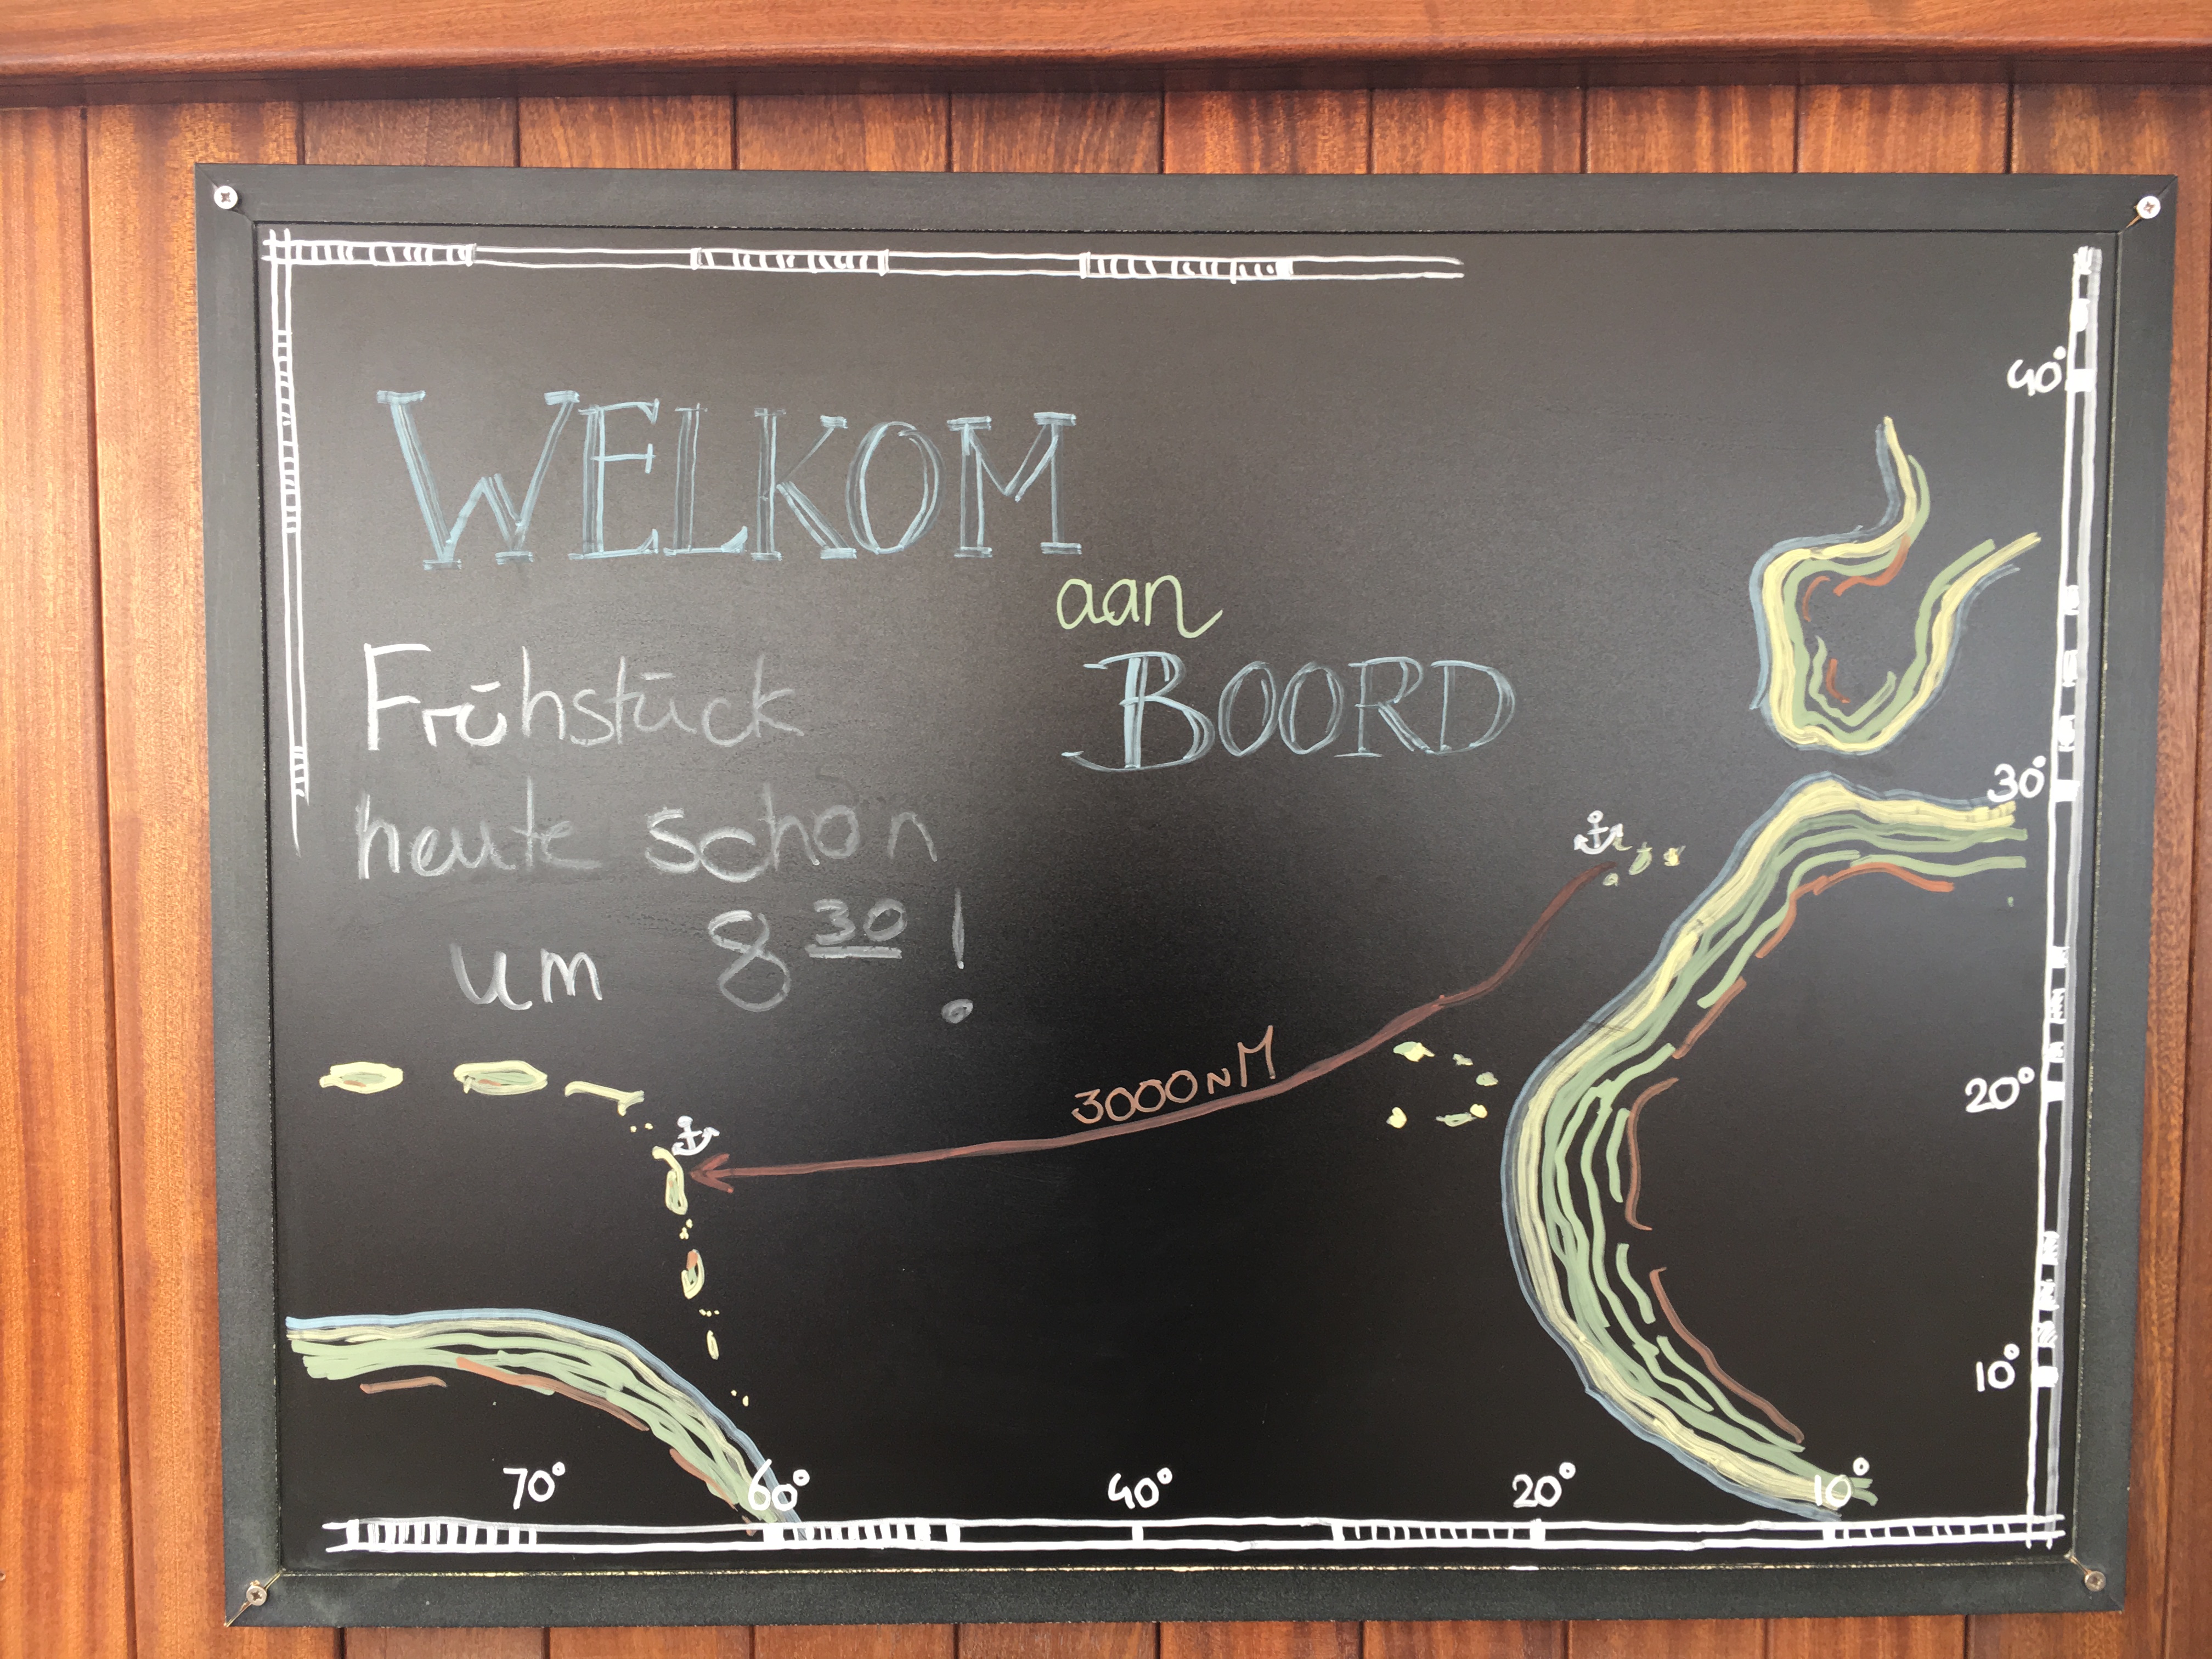 WELKOM
aan
BOORD
Frühstück
heute schon
um 8 30 !
3000 nM
40°
30°
20°
10°
70° 60° 40° 20° 10°